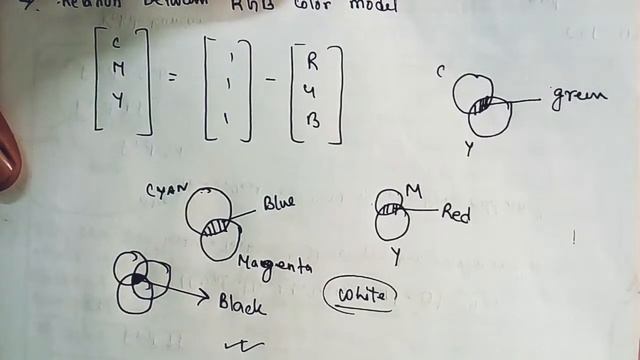 7. Relation between RGB color model
[C M Y] = [1 1 1] - [R G B]
C
green
Y
CYAN
Blue
Magenta
M
Red
Y
Black
white